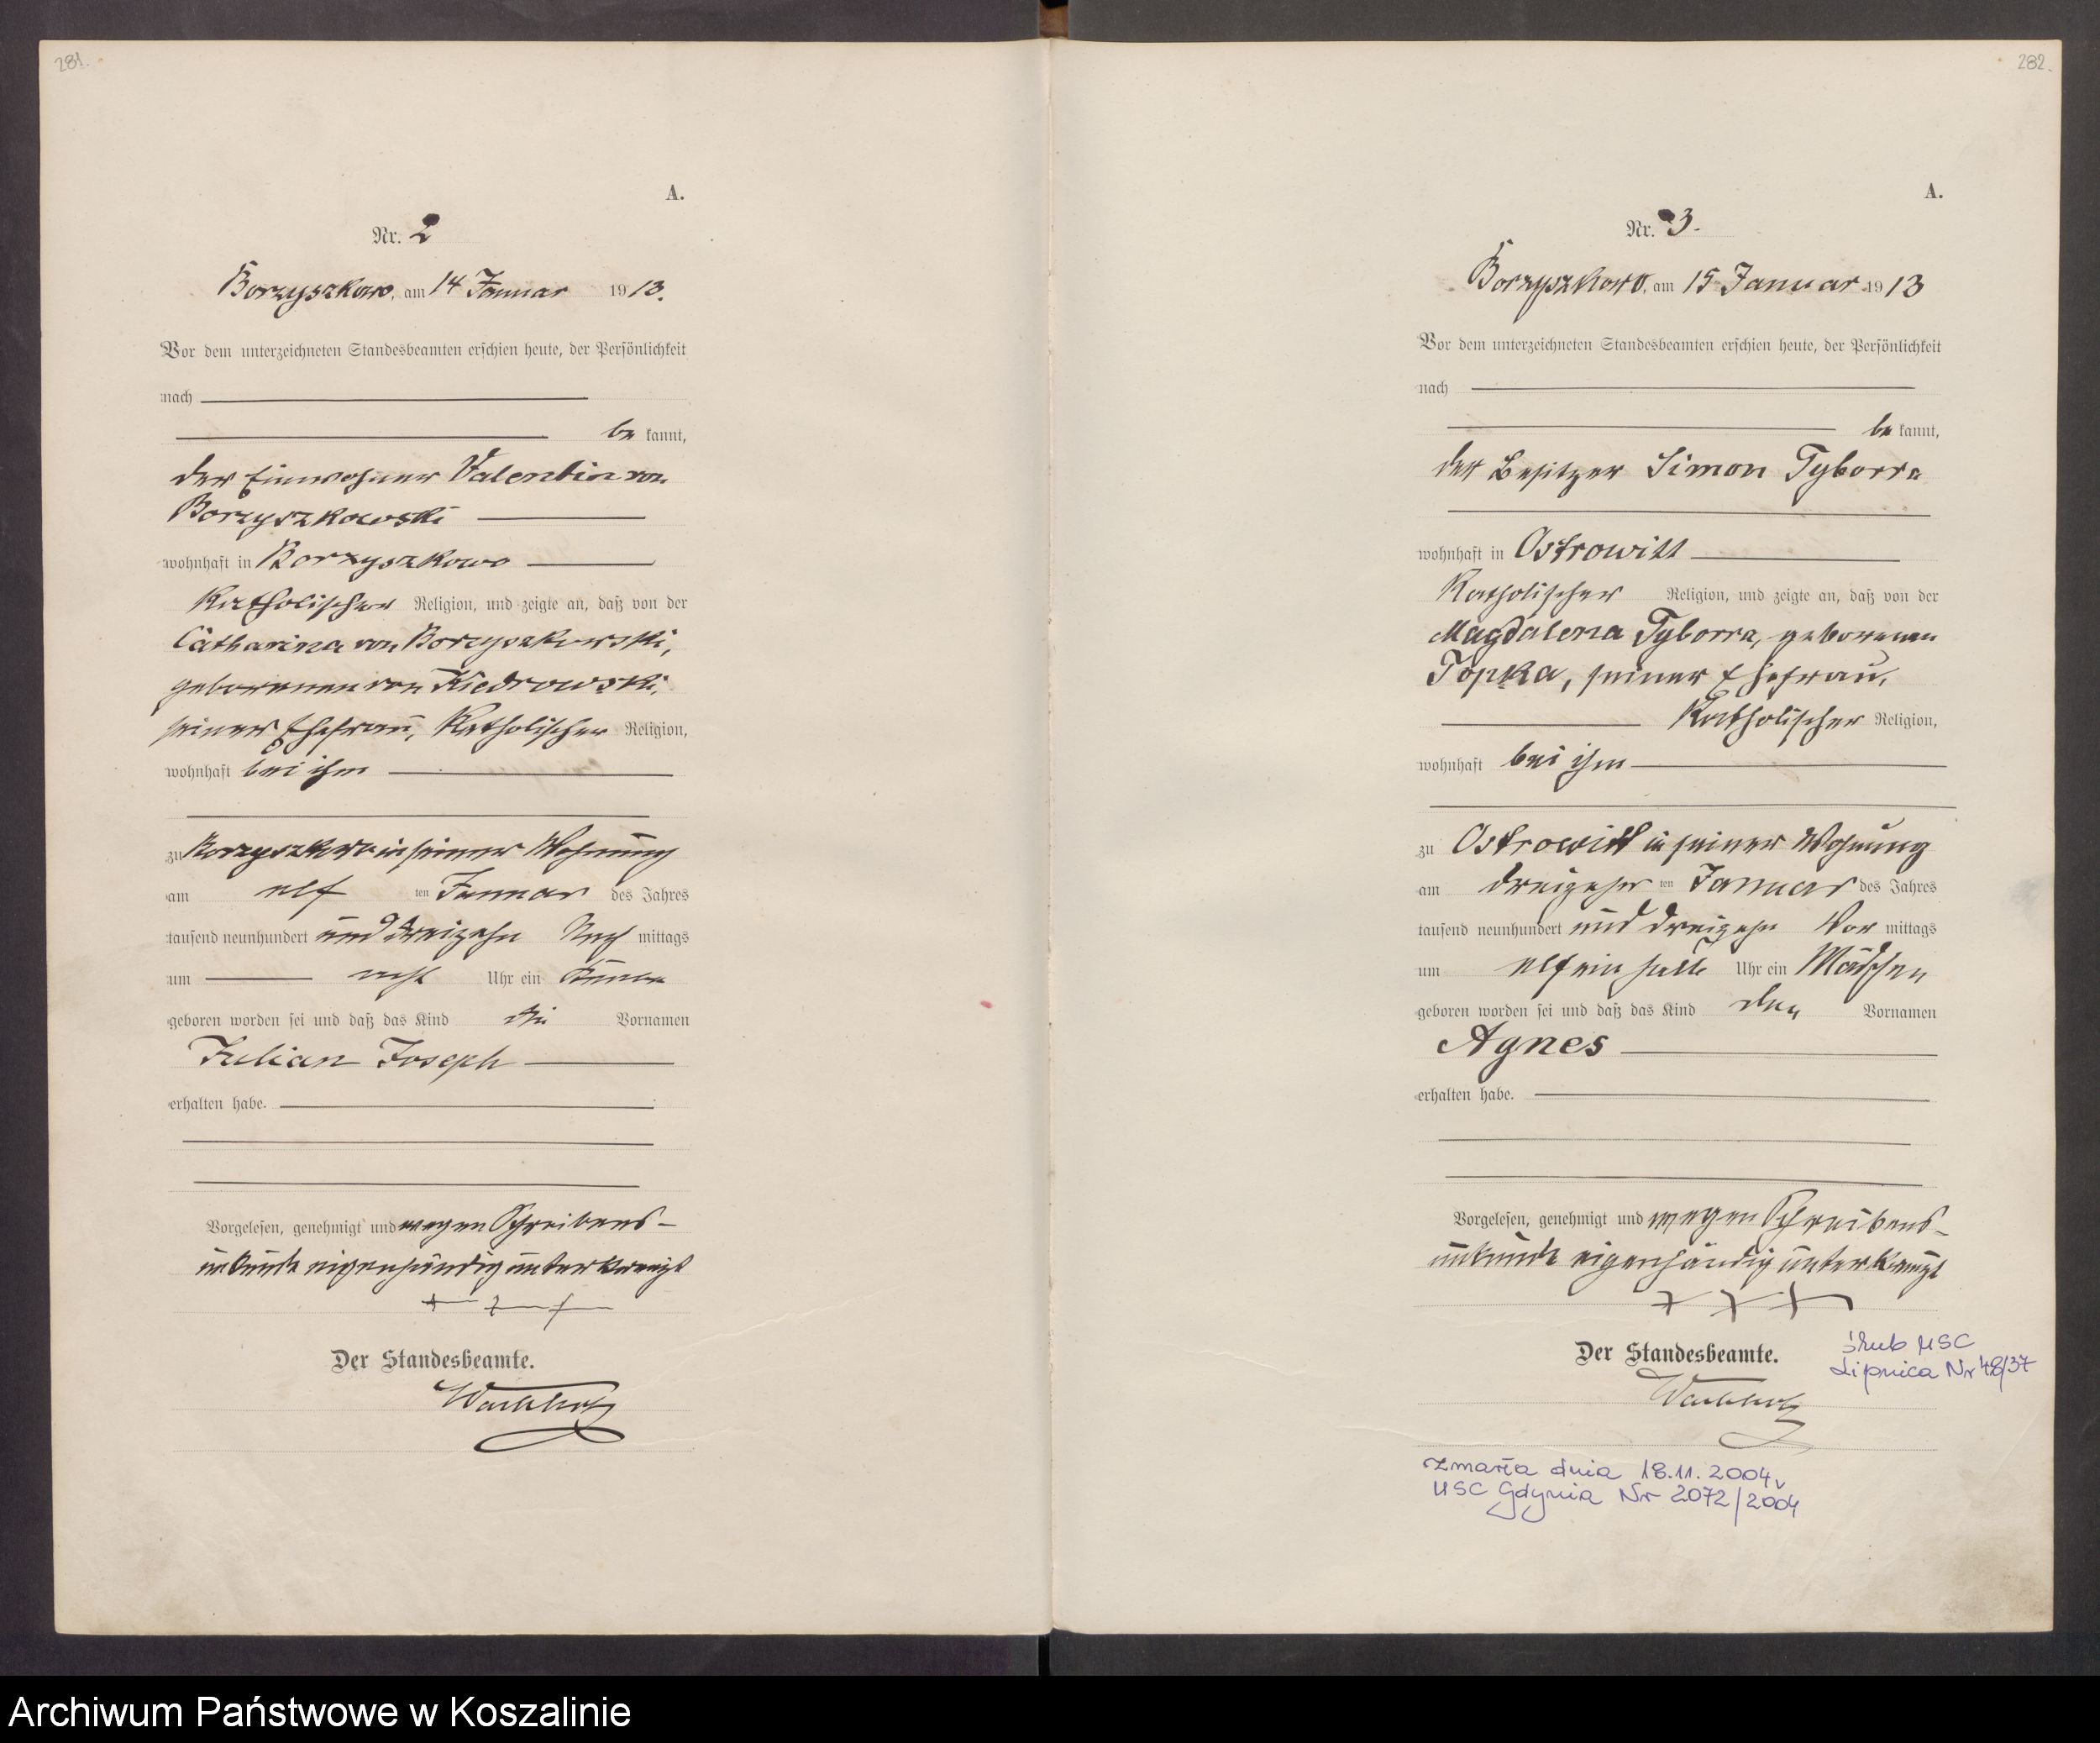 281.
A.
Nr. 2
Borzyszkowo, am 14 Januar 1913.
Vor dem unterzeichneten Standesbeamten erschien heute, der Persönlichkeit
nach
be kannt,
der Einwohner Valentin von
Borzyszkowski
wohnhaft in Borzyszkowo
Katholischer Religion, und zeigte an, daß von der
Catharina von Borzyszkowski,
geborenen von Kiedrowski,
seiner Ehefrau, Katholischer Religion,
wohnhaft bei ihm
zu Borzyszkowo in seiner Wohnung
am elf ten Januar des Jahres
tausend neunhundert und dreizehn Nach mittags
um acht Uhr ein Knabe
geboren worden sei und daß das Kind die Vornamen
Julian Joseph
erhalten habe.
Vorgelesen, genehmigt und wegen Schreibens-
unkunde eigenhändig unterkreuzt
+ + +
Der Standesbeamte.
282.
A.
Nr. 3.
Borzyszkowo, am 15 Januar 1913
Vor dem unterzeichneten Standesbeamten erschien heute, der Persönlichkeit
nach
be kannt,
der Besitzer Simon Tyborra
wohnhaft in Ostrowitt
Katholischer Religion, und zeigte an, daß von der
Magdalena Tyborra, geborenen
Topka, seiner Ehefrau,
Katholischer Religion,
wohnhaft bei ihm
zu Ostrowitt in seiner Wohnung
am dreizehn ten Januar des Jahres
tausend neunhundert und dreizehn Vor mittags
um elf ein halb Uhr ein Mädchen
geboren worden sei und daß das Kind den Vornamen
Agnes
erhalten habe.
Vorgelesen, genehmigt und wegen Schreibens-
unkunde eigenhändig unterkreuzt
+ + +
Der Standesbeamte.
ślub USC
Lipnica Nr 48/37
zmarła dnia 18.11.2004
USC Gdynia Nr 2072/2004
Archiwum Państwowe w Koszalinie